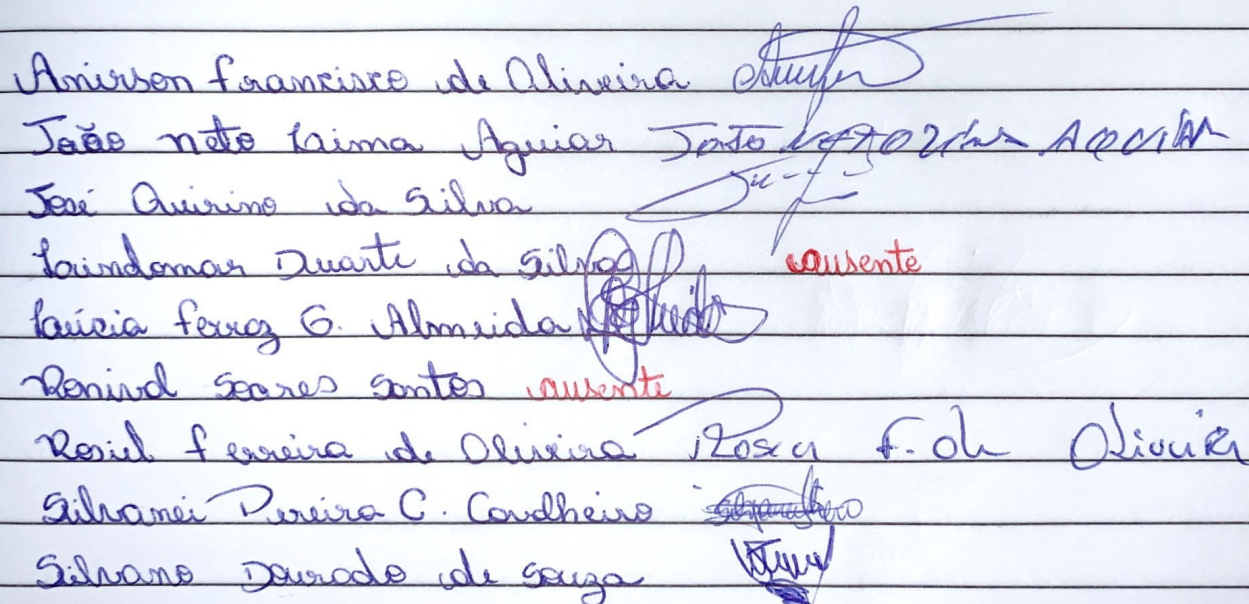 Anirson Francisco de Oliveira
João Neto Laima Aguiar João Neto Aguiar
José Quirino da Silva
Laindomar Duarte da Silva ausente
Laricia Ferraz G. Almeida
Ronivd Soares Santos ausente
Rosiel Ferreira de Oliveira Rosiel F. de Oliveira
Silvanei Pereira C. Cavalheiro
Silvano Dourado de Souza